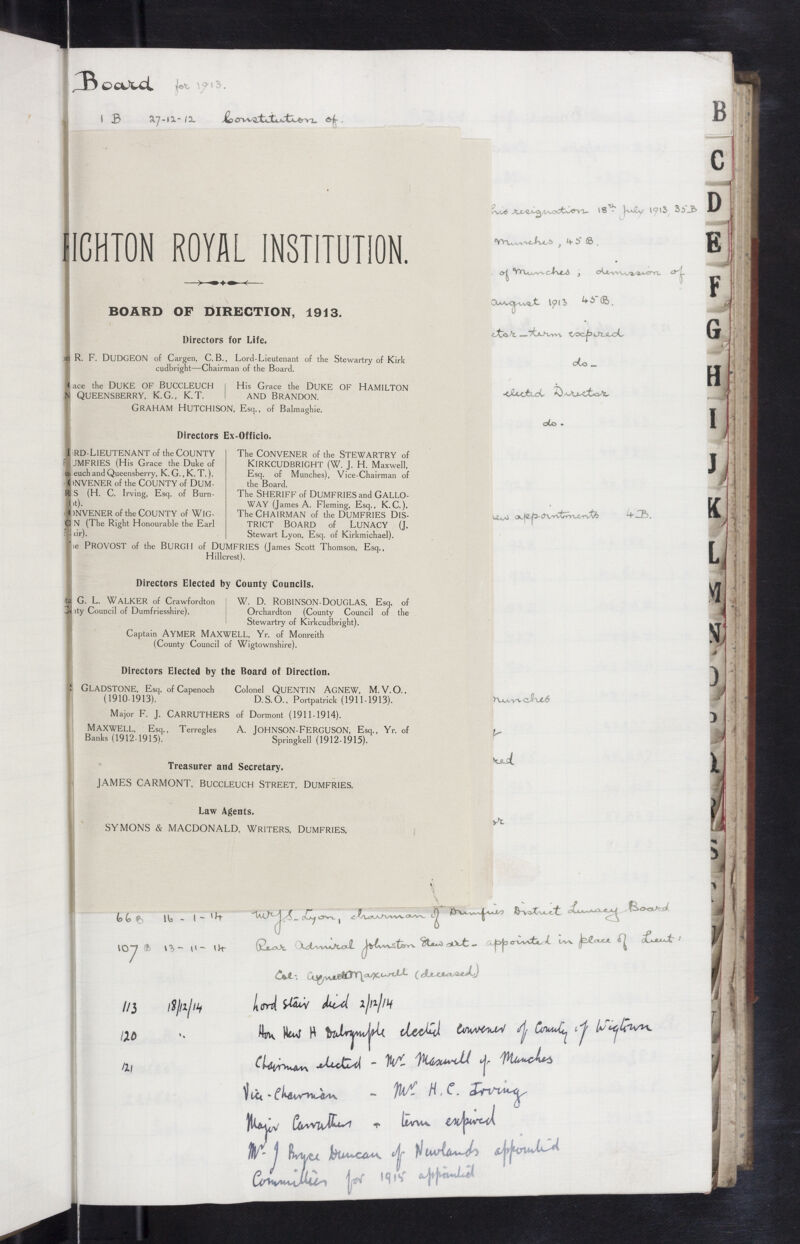 Board for 1913.
1 B 27-12-12 Constitution of.
his resignation 18th July 1913, 35 B
Munches, 45 B.
of Munches; demission of
August 1913 45 B.
term expired
do
elected Director
do.
new appointments 4 B.
Munches
IGHTON ROYAL INSTITUTION.
BOARD OF DIRECTION, 1913.
Directors for Life.
R. F. DUDGEON of Cargen, C.B., Lord-Lieutenant of the Stewartry of Kirk
cudbright—Chairman of the Board.
ace the DUKE OF BUCCLEUCH
QUEENSBERRY, K.G., K.T.
His Grace the DUKE OF HAMILTON
AND BRANDON.
GRAHAM HUTCHISON, Esq., of Balmaghie.
Directors Ex-Officio.
RD-LIEUTENANT of the COUNTY
UMFRIES (His Grace the Duke of
euch and Queensberry, K.G., K.T.).
NVENER of the COUNTY of DUM-
S (H. C. Irving, Esq. of Burn-
NVENER of the COUNTY of WIG-
N (The Right Honourable the Earl
air).
The CONVENER of the STEWARTRY of
KIRKCUDBRIGHT (W. J. H. Maxwell,
Esq. of Munches), Vice-Chairman of
the Board.
The SHERIFF of DUMFRIES and GALLO-
WAY (James A. Fleming, Esq., K.C.).
The CHAIRMAN of the DUMFRIES DIS-
TRICT BOARD of LUNACY (J.
Stewart Lyon, Esq. of Kirkmichael).
PROVOST of the BURGH of DUMFRIES (James Scott Thomson, Esq.,
Hillcrest).
Directors Elected by County Councils.
G. L. WALKER of Crawfordton
ty Council of Dumfriesshire).
W. D. ROBINSON-DOUGLAS, Esq. of
Orchardton (County Council of the
Stewartry of Kirkcudbright).
Captain AYMER MAXWELL, Yr. of Monreith
(County Council of Wigtownshire).
Directors Elected by the Board of Direction.
GLADSTONE, Esq. of Capenoch
(1910-1913).
Colonel QUENTIN AGNEW, M.V.O.,
D.S.O., Portpatrick (1911-1913).
Major F. J. CARRUTHERS of Dormont (1911-1914).
MAXWELL, Esq., Terregles
Banks (1912-1915).
A. JOHNSON-FERGUSON, Esq., Yr. of
Springkell (1912-1915).
Treasurer and Secretary.
JAMES CARMONT, BUCCLEUCH STREET, DUMFRIES.
Law Agents.
SYMONS & MACDONALD, WRITERS, DUMFRIES.
66 B 16-1-14 Mr J S Lyon, chairman of Dumfries District Lunacy Board
107 B 13-11-14 Rear Admiral Johnston Stewart - appointed in place of Lieut:
Col: Maxwell (deceased)
113 18/12/14 Lord Stair died 2/12/14
120 " Hon Hew H Dalrymple elected convener of County of Wigtown
121 Chairman elected - Mr Maxwell of Munches
Vice-Chairman - Mr H. C. Irving
Major Carruthers term expired
Mr J Bryce Duncan of Newlands appointed
Committees for 1915 appointed
B
C
D
E
F
G
H
I
J
K
L
M
N
O
P
Q
R
S